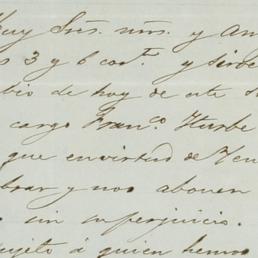 Muy Sres. nros. y Am
s 3 y 6 corrte. y sirve
bio de hoy de este
cargo Franco. Iturbe
que en virtud de
brar y nos abonen
sin superjuicio.
sujeto á quien hemos